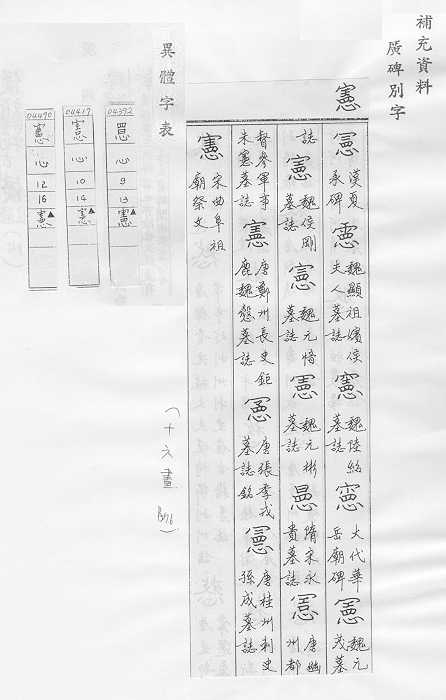 補充資料
廣碑別字
憲
漢夏承碑
魏顯祖嬪侯夫人墓誌
魏陸紹墓誌
大代華岳廟碑
魏元茂墓
誌
魏侯剛墓誌
魏元愔墓誌
魏元彬墓誌
隋宋永貴墓誌
唐幽州都
督參軍事朱憲墓誌
唐鄭州長史鉅鹿魏愨墓誌
唐張孝戎墓誌銘
唐桂州刺史孫成墓誌
憲
宋曲阜祖廟祭文
(十六畫 B76)
異體字表
04392
心
9
13
憲▲
04417
心
10
14
憲▲
04470
心
12
16
憲▲